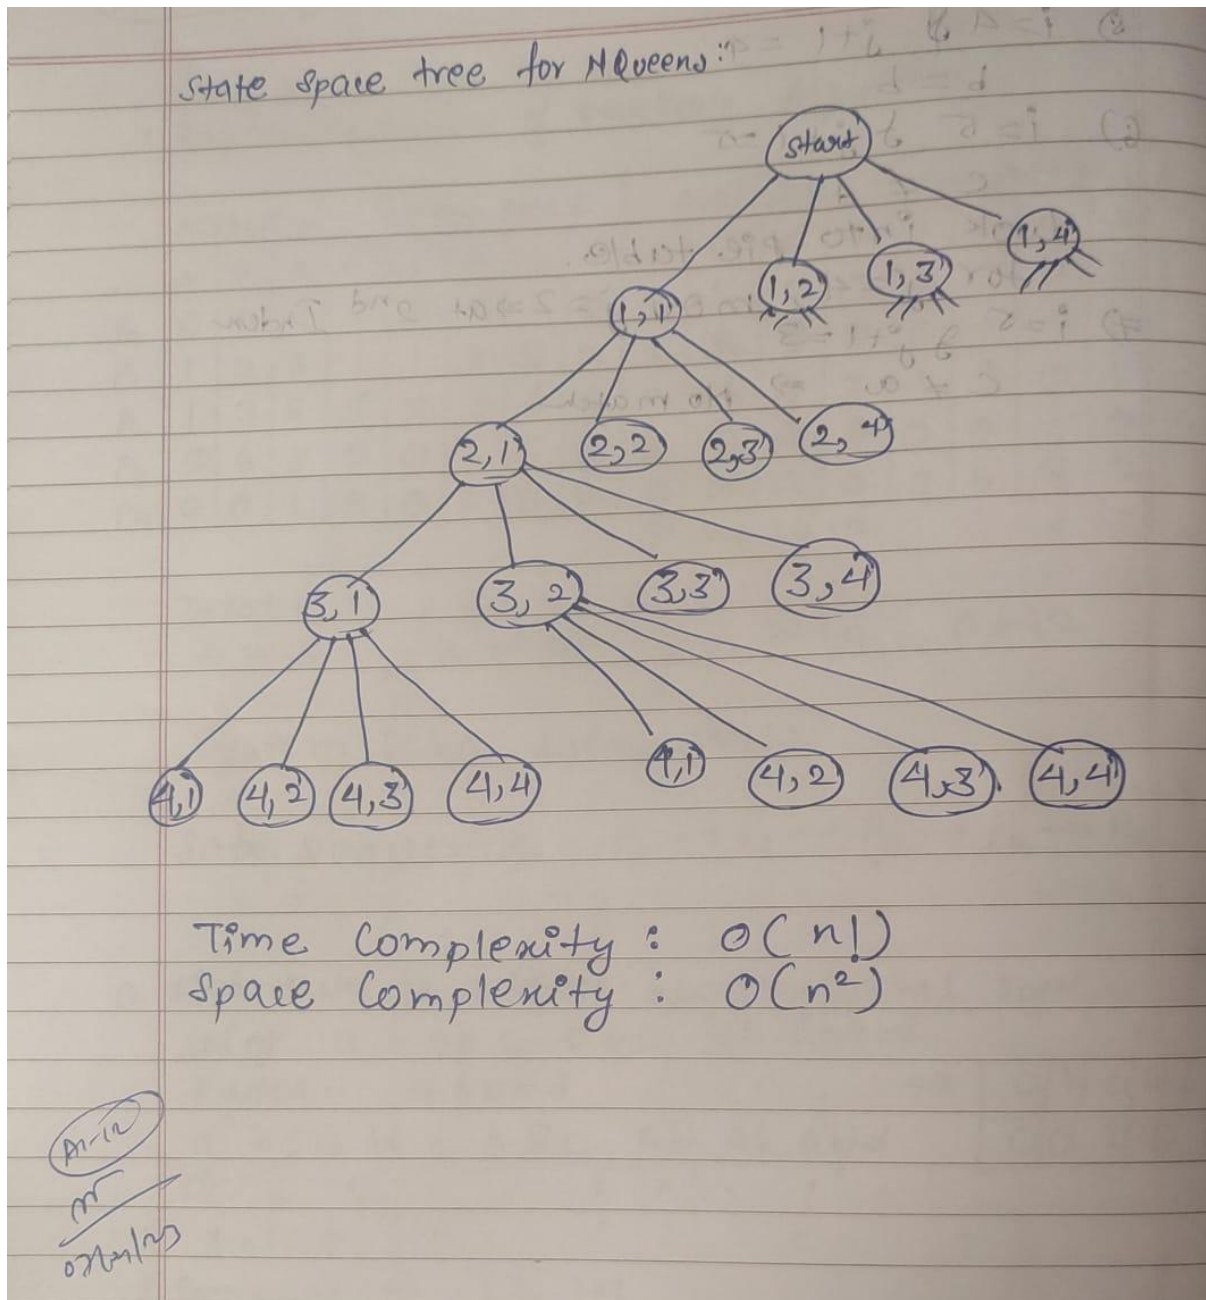 State space tree for NQueens:
start
1,1 1,2 1,3 1,4
2,1 2,2 2,3 2,4
3,1 3,2 3,3 3,4
4,1 4,2 4,3 4,4 4,1 4,2 4,3 4,4
Time Complexity : O(n!)
Space Complexity : O(n²)